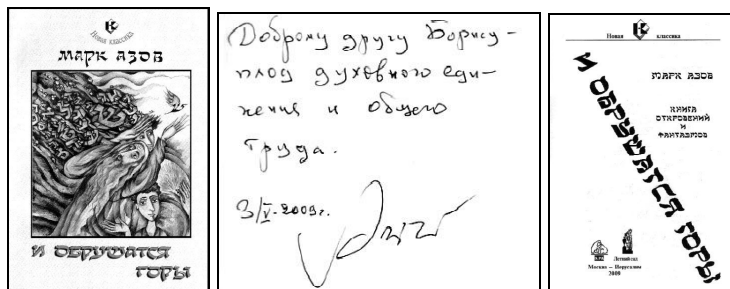 Новая классика
МАРК АЗОВ
И ОБРУШАТСЯ
ГОРЫ
Доброму другу Борису -
плод духовного еди-
нения и общего
труда.
3/V-2009г.
Новая классика
МАРК АЗОВ
КНИГА
ОТКРОВЕНИЙ
И
ФАНТАЗМОВ
И ОБРУШАТСЯ ГОРЫ
Летний сад
Москва – Иерусалим
2009